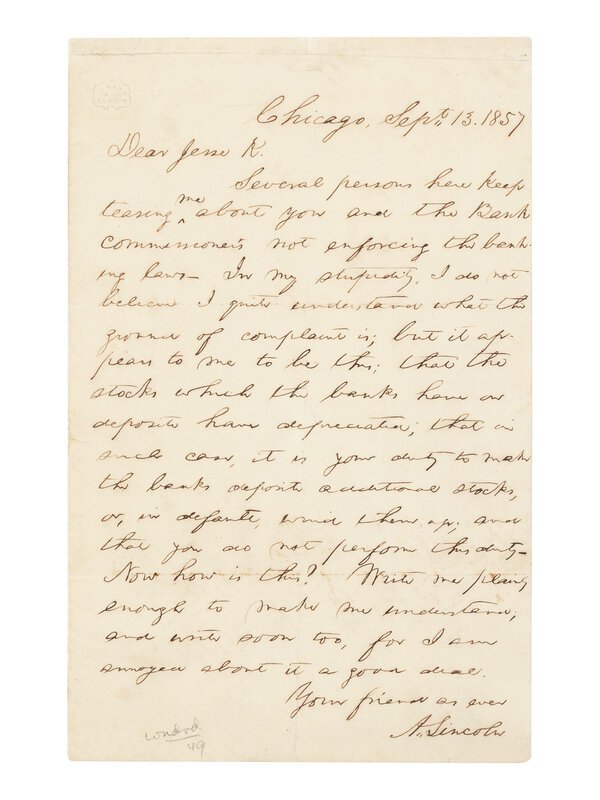 Chicago, Sept. 13. 1857
Dear Jesse K.
Several persons here keep
teasing me about you and the Bank
commissioners not enforcing the bank-
ing laws— In my stupidity, I do not
believe I quite understand what the
ground of complaint is; but it ap-
pears to me to be this; that the
stocks which the banks have on
deposite have depreciated; that in
such case, it is your duty to make
the banks deposite additional stocks,
or, in default, wind them up; and
that you do not perform this duty—
Now how is this? Write me plainly
enough to make me understand;
and write soon too, for I am
annoyed about it a good deal.
Your friend as ever
A. Lincoln
49